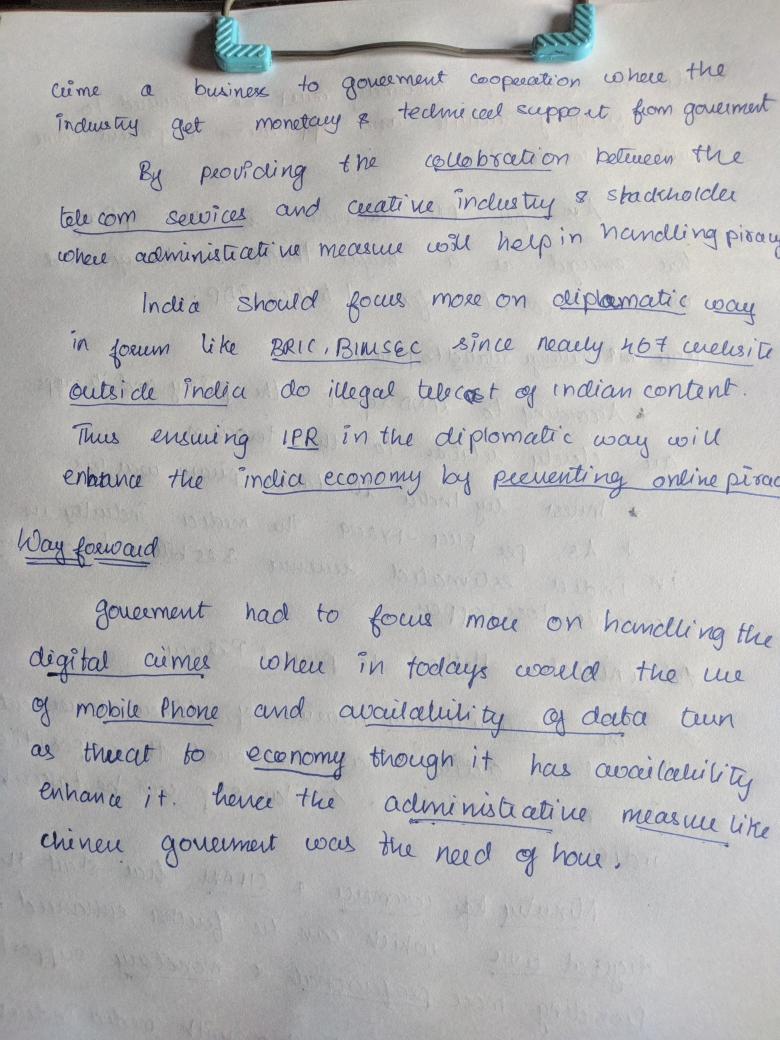 crime a business to goverment cooperation where the
industry get monetary & technical support from goverment
By providing the collobration between the
telecom services and creative industry & stackholder
where administrative measure will help in handling piracy
India should focus more on diplomatic way
in forum like BRIC, BIMSEC since nearly 467 website
outside india do illegal telecast of indian content.
Thus ensuring IPR in the diplomatic way will
enhance the india economy by preventing online pirac
Way forward
goverment had to focus more on handling the
digital crimes where in todays world the use
of mobile Phone and availability of data turn
as threat to economy though it has availability
enhance it. hence the administrative measure like
chinese goverment was the need of hour.